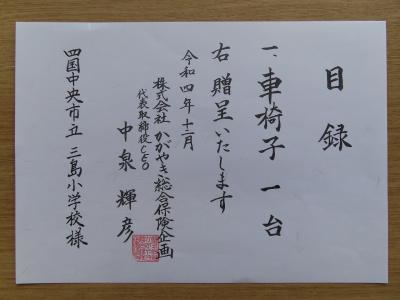 目録
一、車椅子 一台
右 贈呈いたします
令和四年十二月
株式会社 かがやき総合保険企画
代表取締役CEO
中泉 輝彦
四国中央市立 三島小学校様